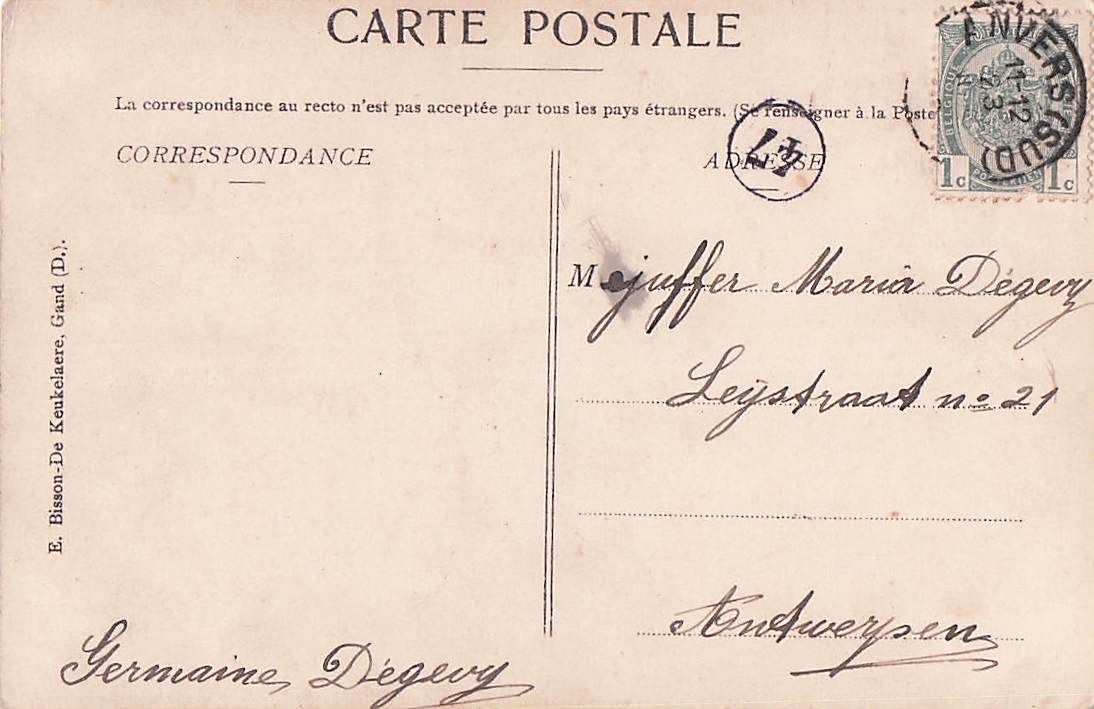 CARTE POSTALE
La correspondance au recto n'est pas acceptée par tous les pays étrangers. (Se renseigner à la Poste
CORRESPONDANCE
ADRESSE
47
ANVERS (SUD)
11-12
3
BELGIQUE
1c 1c
E. Bisson-De Keukelaere, Gand (D.).
Mejuffer Maria Dégevy
Leÿstraat no 21
Antwerpen
Germaine Dégevy